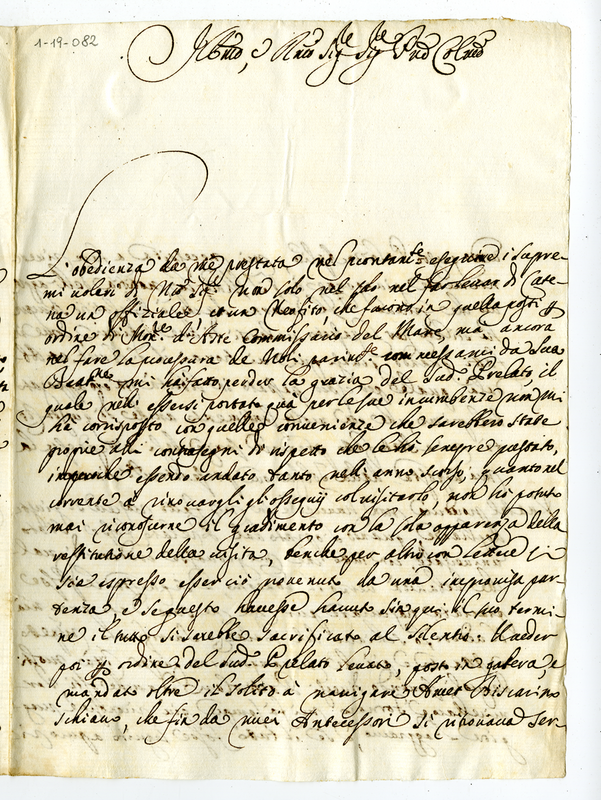 1-19-082
Ill.mo, e R.mo Sig.re Sig.re P.rone Col.mo
L'obedienza da me prestata nel prontam.te eseguire i supre-
mi voleri di N.ro Sig.re non solo nel far levar di Cate-
na un offiziale, et un Neofito, che furono in quella posti p
ordine di Mons.r d'Aste Commissario del Mare, ma ancora
nel fare la de Mori comessami da Sua
Beat.ne mi hà fatto perder la grazia del sud.o Prelato, il
quale nell' essersi portato quà per le sue incumbenze non mi
hà corrisposto con quelle convenienze che sarebbero state
proprie alli contrasegni di rispetto che le hò sempre prestato,
imperoche essendo andato tanto nell' anno scorso, quanto nel
corrente à rinovargli gli ossequij col visitarlo, non hò potuto
mai riconoscerne il gradimento con la sola apparenza della
restituzione della visita, benche per altro con lettere si
sia espresso esserciò provenuto da una improvisa par-
tenza, e se questo havesse havuto sin qui il suo termi-
ne il tutto si sarebbe sacrificato al silentio: Il veder
poi p ordine del sud.o Prelato levato, posto in galera, e
mandato oltre il solito à navigare Amet Biscarino
schiavo, che fin da miei Antecessori si ritrovava ser-